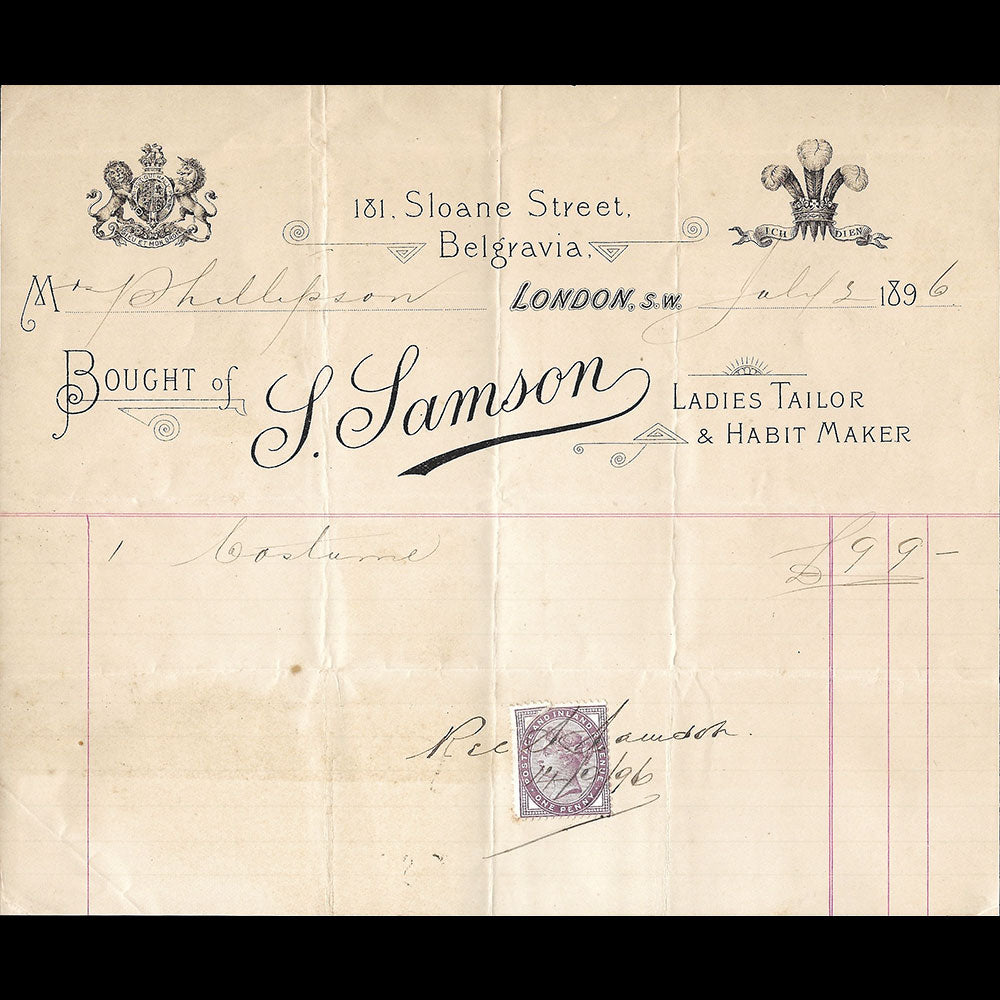 181, Sloane Street,
Belgravia,
DIEU ET MON DROIT
ICH DIEN
Mrs Phillipson LONDON, S.W. July 2 1896
BOUGHT of S. Samson LADIES TAILOR
& HABIT MAKER
1 Costume £9 9 -
Rec S. Samson.
POSTAGE AND INLAND REVENUE
ONE PENNY
/96